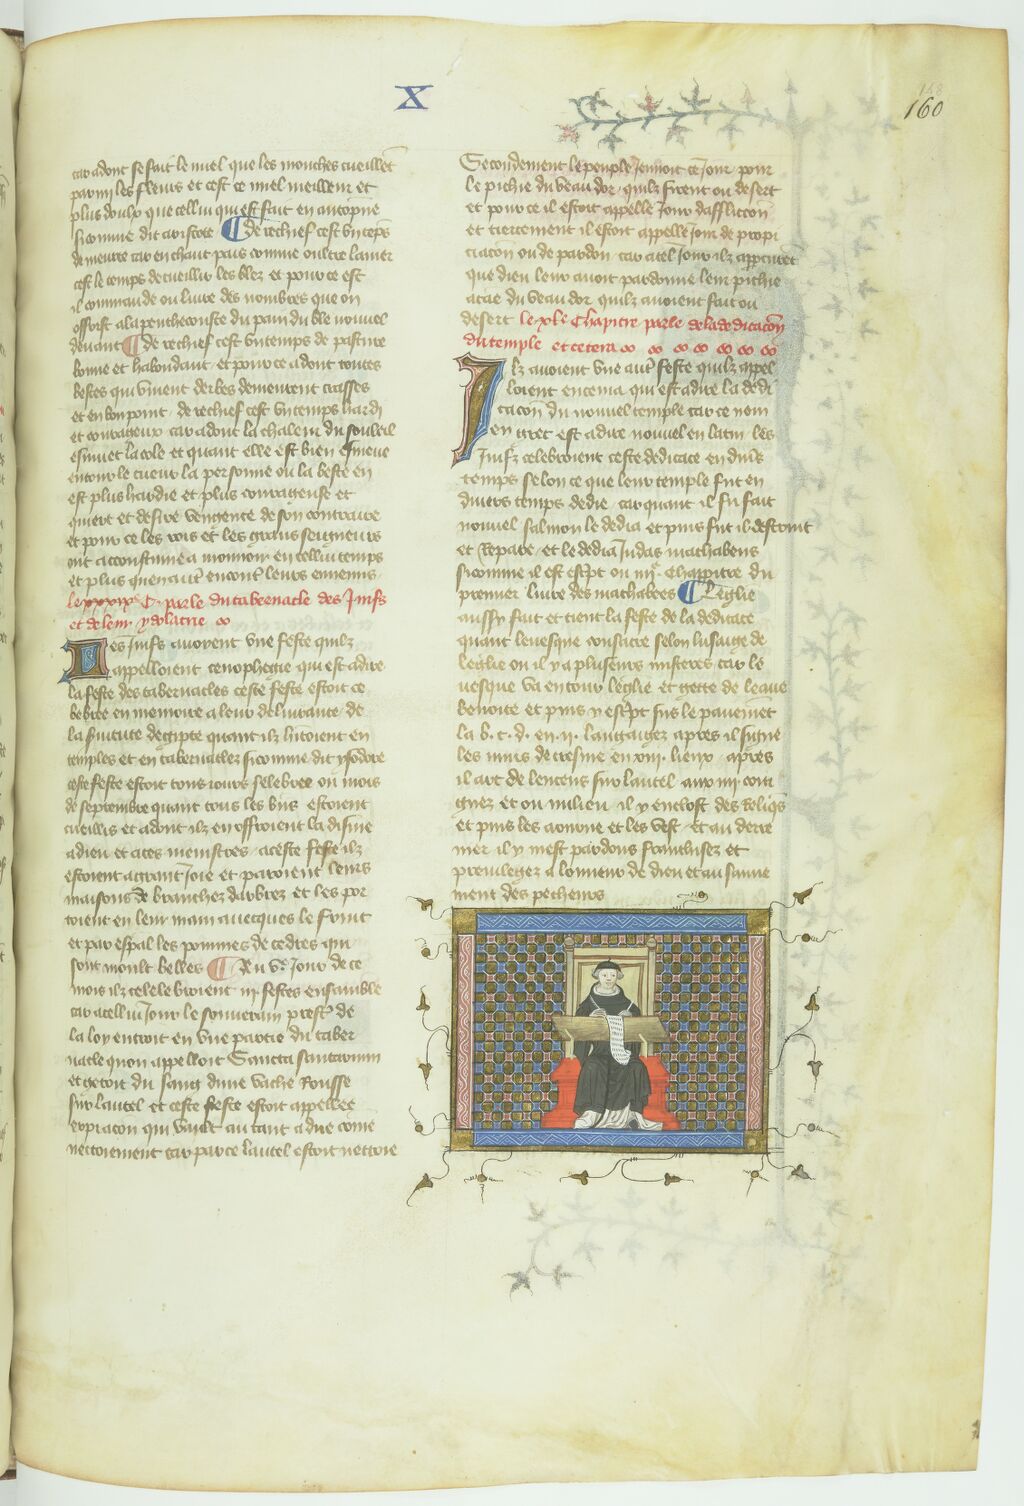 X
148
160
car adont se fait le miel que les mouches cueillent
parmi les fleurs et cest ce miel meilleur et
plus doulx que cellui qui est fait en autopne
sicomme dit aristote ¶ De rechief cest un temps
de meurte car en chaut pais comme oultre la mer
cest le temps de cueillir les blez et pour ce est
il commande ou livre des nombres que on
offrist a la penthecouste du pain du ble nouvel
devant ¶ De rechief cest un temps de pasture
bonne et habondant et pour ce adont toutes
bestes qui vivent derbes demeurent crasses
et en bon point. de rechief cest un temps hardi
et courageux car adont la chaleur du souleil
esmuet la cole et quant elle est bien esmeue
entour le cueur la personne ou la beste en
est plus hardie et plus courageuse et
quiert et desire vengence de son contraire
et pour ce les rois et les grans seigneurs
ont acoustume a mouvoir en cellui temps
et plus quen autre encontre leurs ennemis
le xxxix C. parle du tabernacle des Juifs
et de leur ydolatrie
Les Juifs avoyent une feste quilz
appelloient cenophegie qui est a dire
la feste des tabernacles ceste feste estoit ce
lebree en memoire a leur delivrance de
la servitute degipte quant ilz hitoient en
temples et en tabernacles sicomme dit ysodore
ceste feste estoit tous jours selebree ou mois
de septembre quant tous les bns estoient
cueillis et adont ilz en offroient la disme
a dieu et a ces menistres. a ceste feste ilz
estoient a grant Joie et paroient leurs
maisons de branchez darbrez et les por
toient en leur main avecques le fruit
et par espal les pommes de cedres qui
sont moult belles ¶ Au ve Jour de ce
mois ilz celebroient iii festes ensamble
car a cellui Jour le souverain prestre de
la loy entroit en une partie du taber
nacle quon appelloit Sancta sanctorum
et getoit du sang dune vache Rousse
sur lautel et ceste feste estoit appellee
expiacon qui vault autant a dire come
nettoiement car par ce lautel estoit nettoie
Secondement le peuple Jeunoit ce Jour pour
le pichie du veau dor quilz firent ou desert
et pour ce il estoit appelle Jour dafflicion
et tiercement il estoit appelle Jour de propi
ciacon ou de pardon car a tel Jour ilz apperceurent
que dieu leur avoit pardonne leur pichie
a cae du veau dor quilz avoient fait ou
desert le xle Chapitre parle de la dedicacon
du temple et cetera
Ilz avoient une autre feste quilz apel
loient encenia qui est a dire la dedi
cacon du nouvel temple car ce nom
en grec est a dire nouvel en latin. les
Juifz celebroient ceste dedicace en divers
temps selon ce que leur temple fut en
divers temps dedie. car quant il fu fait
nouvel salmon le dedia et puis fut il destruit
et Repare. et le dedia Judas machabeus
sicomme il est escript ou iiiie Chappitre du
premier livre des machabees ¶ Leglise
aussy fait et tient la feste de la dedicace
quant levesque consacre selon lusaige de
leglise ou il y a pluseurs misteres car le
vesque va entour leglise et gette de leaue
benoite et puis y escript sus le pavement
la .b.c.d. en .ii. langaigez apres il signe
les murs de cresme en xii. lieux. apres
il art de lencens sur lautel aux iiii cor
gnez et ou milieu il y enclost des Reliqs
et puis les aourne et les vest. Et au derre
nier il y mest pardons franchisez et
previlegez a lonneur de dieu et au sauve
ment des pecheurs